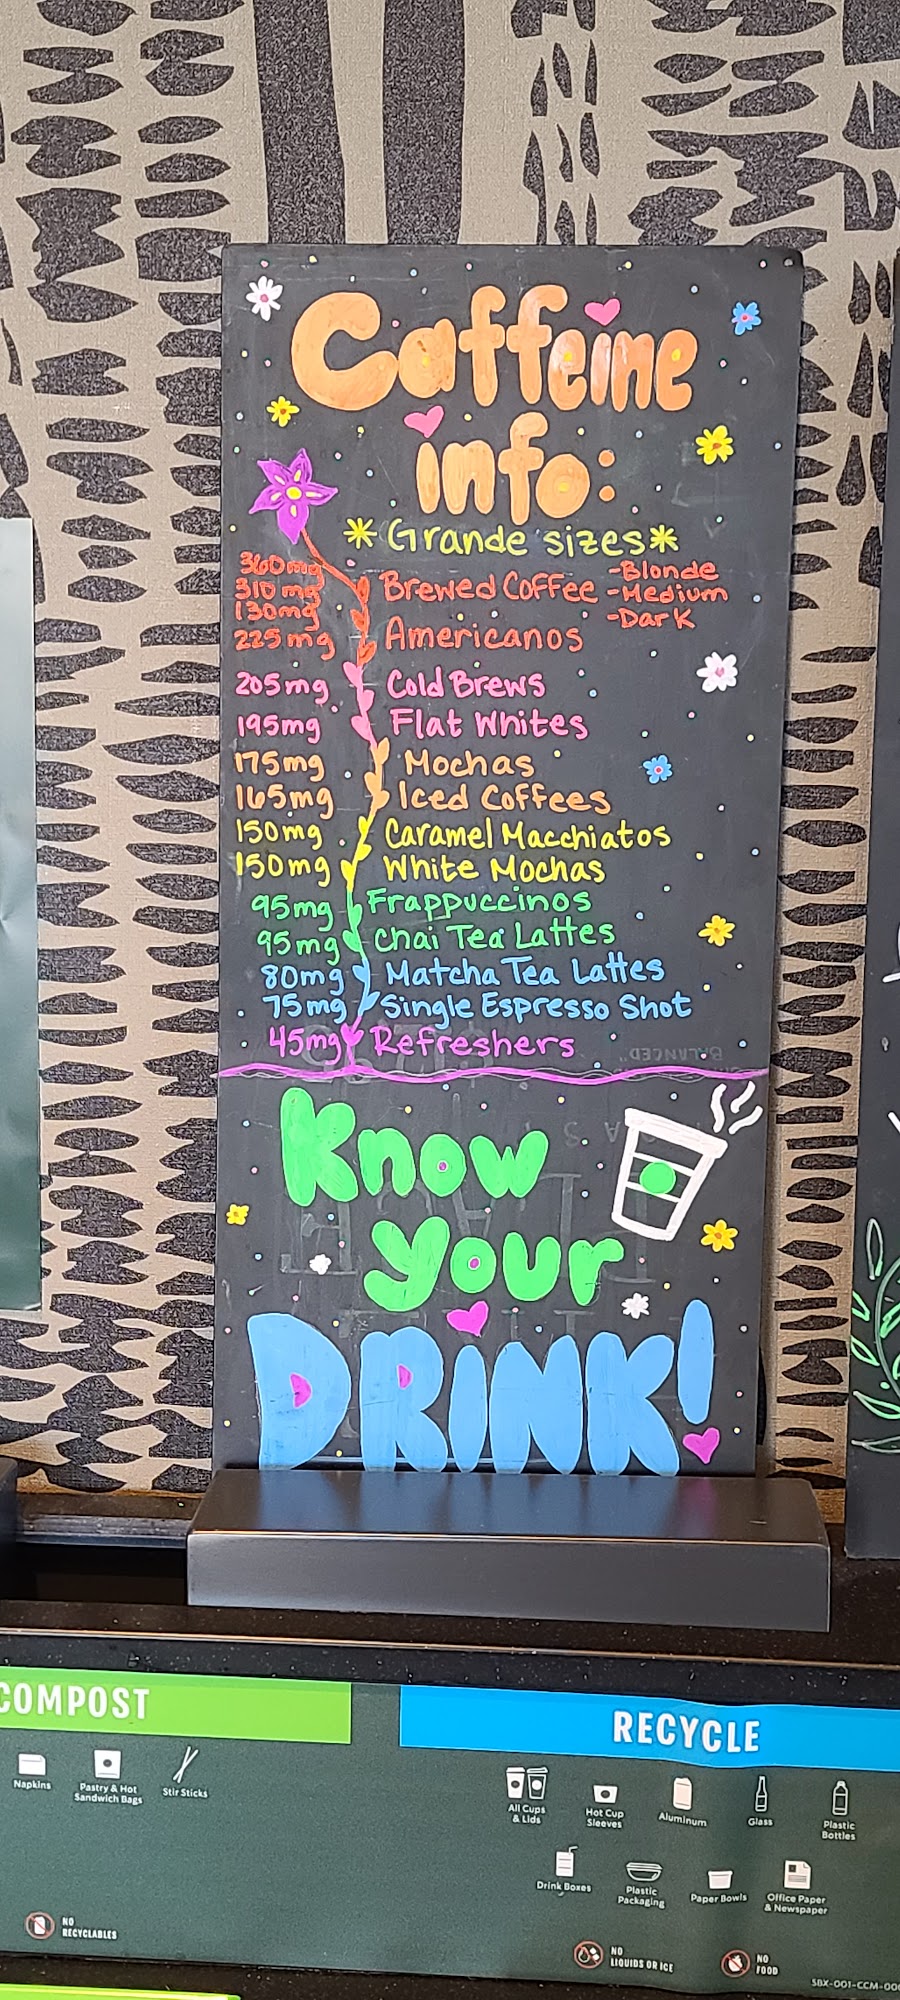 Caffeine
info:
*Grande sizes*
360mg
310mg
130mg
Brewed Coffee -Blonde
-Medium
-Dark
225mg Americanos
205mg Cold Brews
195mg Flat Whites
175mg Mochas
165mg Iced Coffees
150mg Caramel Macchiatos
150mg White Mochas
95mg Frappuccinos
95mg Chai Tea Lattes
80mg Matcha Tea Lattes
75mg Single Espresso Shot
45mg Refreshers
Know
your
DRINK!
COMPOST
Napkins
Pastry & Hot
Sandwich Bags
Stir Sticks
NO
RECYCLABLES
RECYCLE
All Cups
& Lids
Hot Cup
Sleeves
Aluminum
Glass
Plastic
Bottles
Drink Boxes
Plastic
Packaging
Paper Bowls
Office Paper
& Newspaper
NO
LIQUIDS OR ICE
NO
FOOD
SBX-001-CCM-00